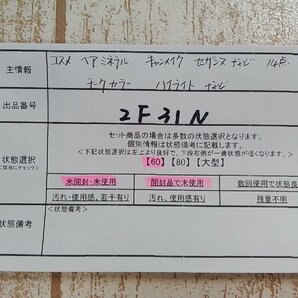 主情報
コスメ ベアミネラル キャンメイク セザンヌ など 14点
チークカラー ハイライト など
出品番号
2F31N
状態選択
<該当にチェック>
セット商品の場合は多数の状態選択となります。
個別情報は状態備考に記載します。
<下記状態は左上より良好で、下段右側が一番状態が低くなります。>
【60】【80】【大型】
未開封・未使用 開封品で未使用 数回使用で状態良
汚れ・使用感、若干有り 汚れ、使用感有り 残量不明
状態備考
<状態備考>